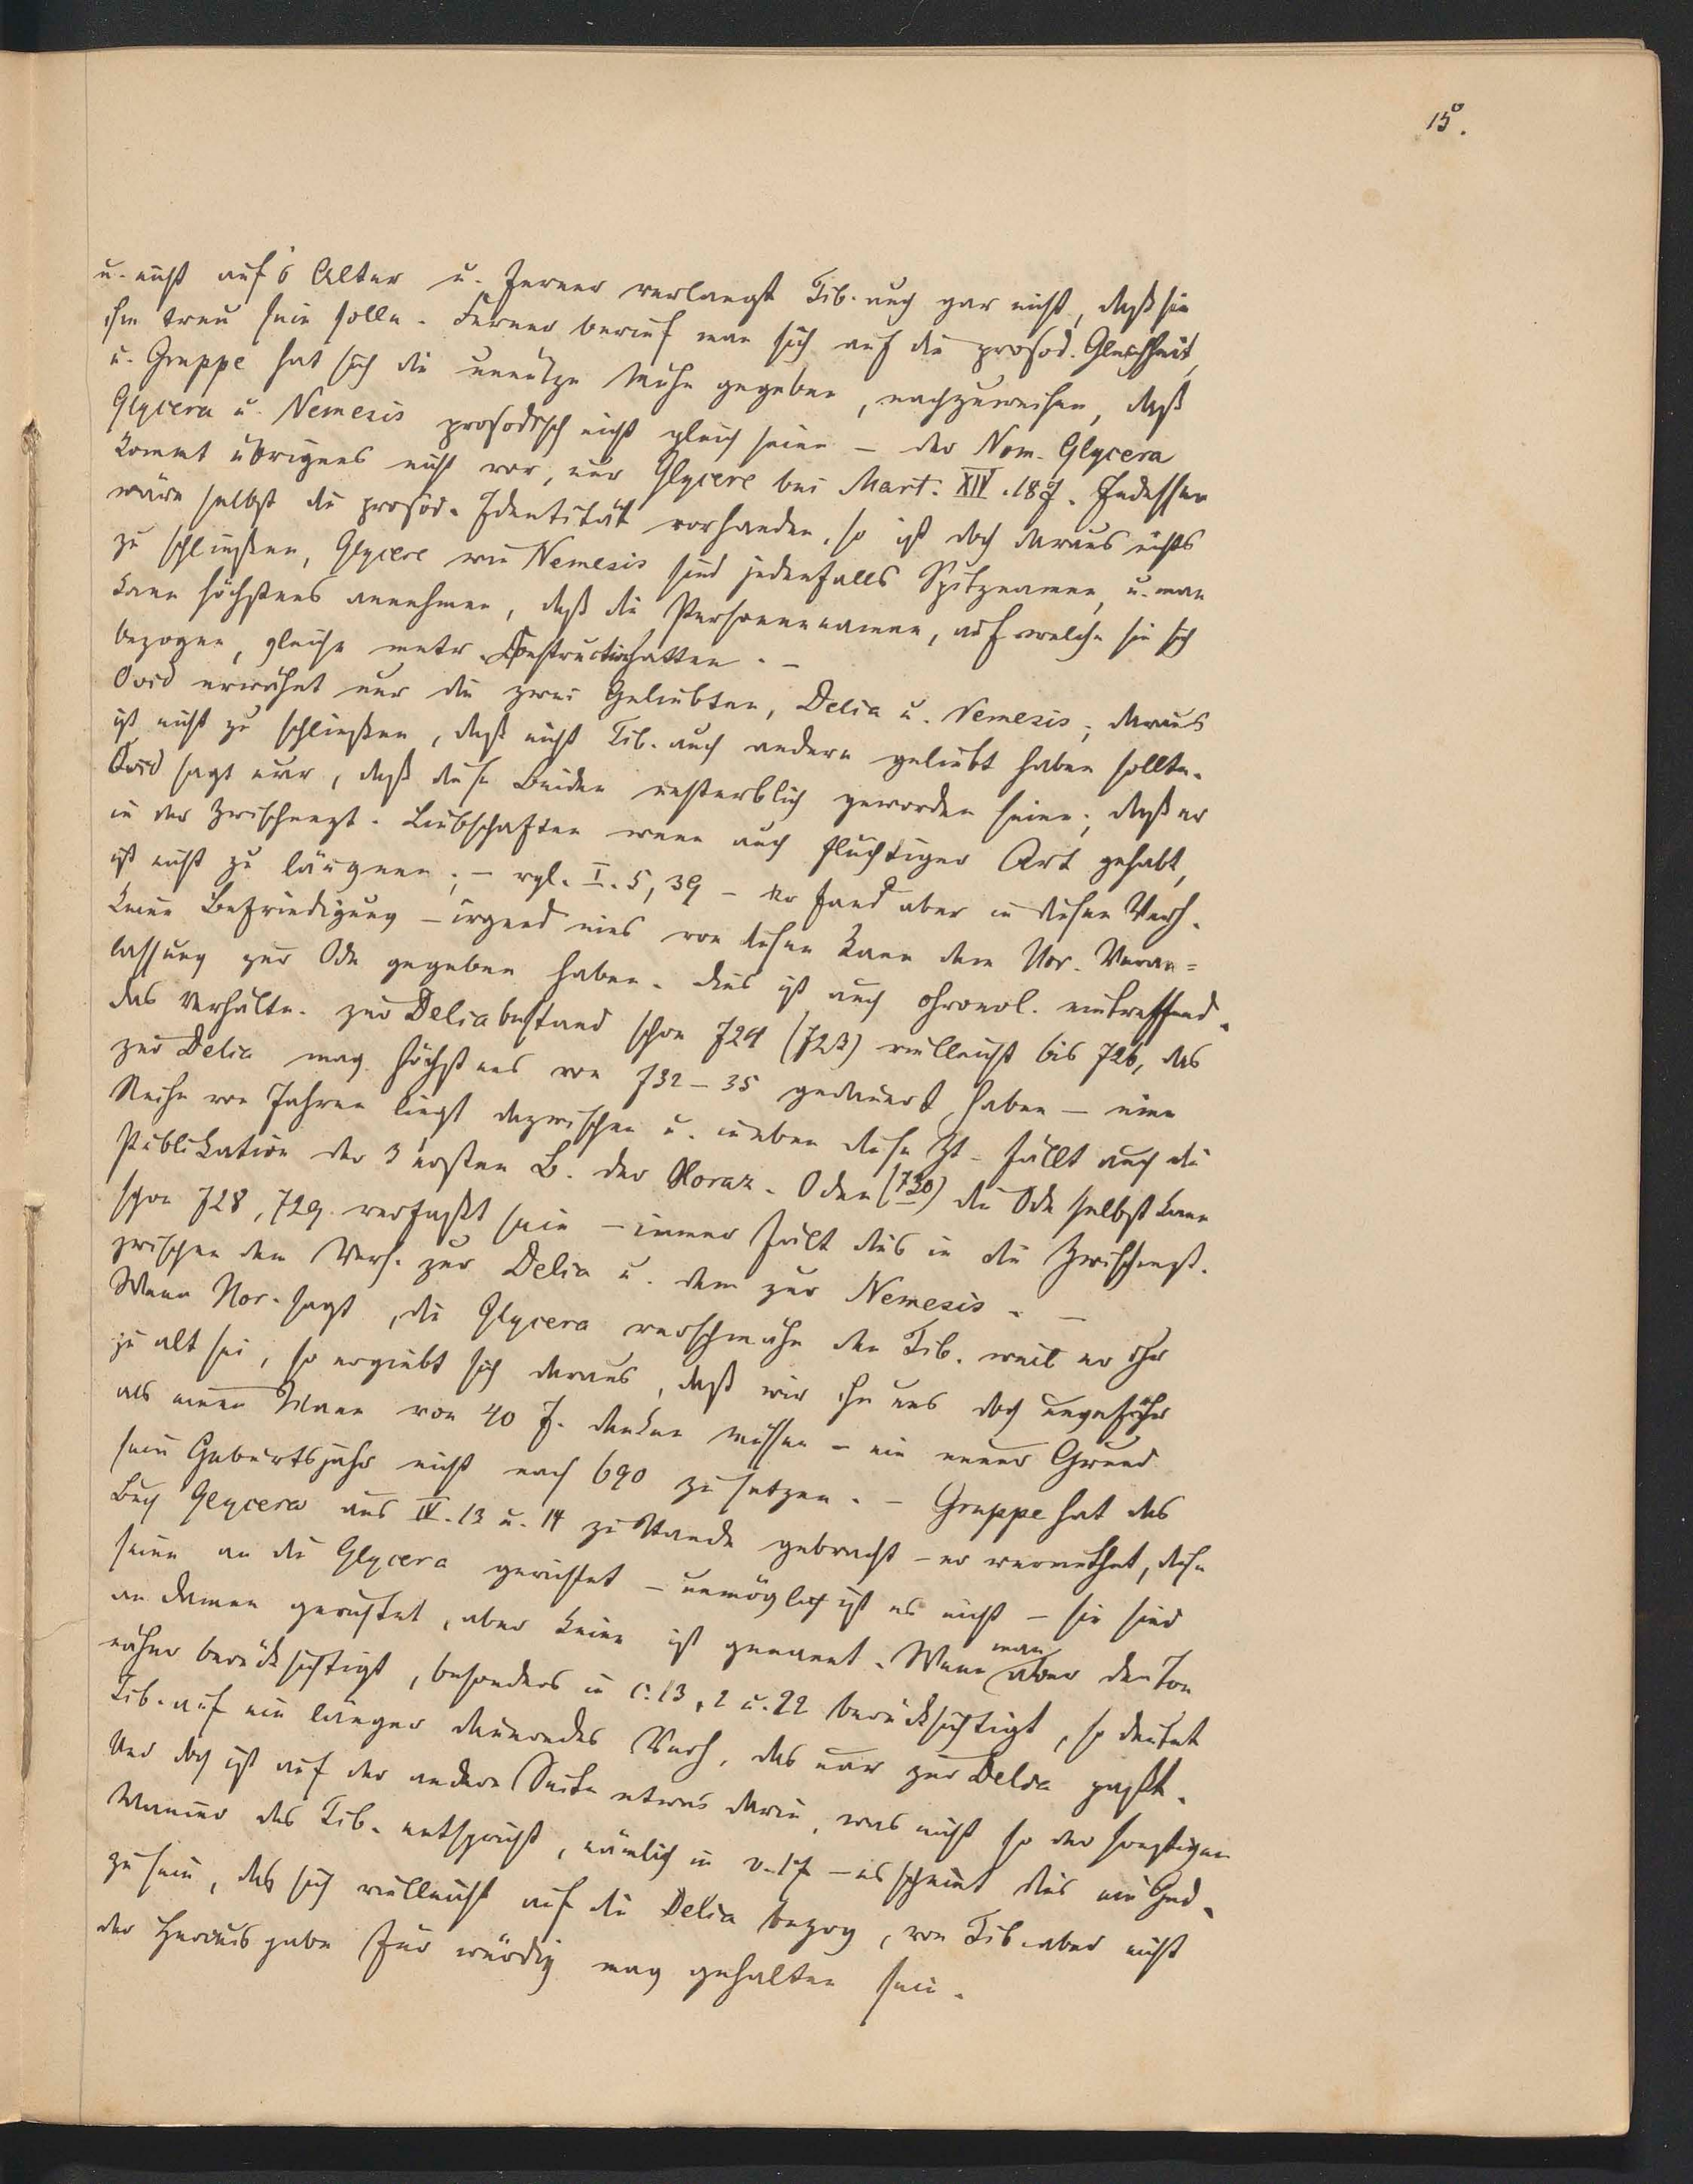 15.
u. nicht auf's Alter u. ferner verlangt Tib. auch gar nicht, daß sie
ihm treu sein solle. Ferner berief man sich auf die prosod. Gleichheit,
u. Gruppe hat sich die unnütze Mühe gegeben, nachzuweisen, daß
Glycera u. Nemesis prosodisch nicht gleich seien – der Nom. Glycera
kommt übrigens nicht vor, nur Glycere bei Mart. XIV. 187. Indessen
wäre selbst die prosod. Identität vorhanden, so ist doch daraus nichts
zu schließen, Glycere wie Nemesis sind jedenfalls Spitznamen, u. man
kann höchstens annehmen, daß die Personennamen, auf welche sie sich
bezogen, gleiche metr. Construction hatten. –
Ovid erwähnt nur die zwei Geliebten, Delia u. Nemesis; daraus
ist nicht zu schließen, daß nicht Tib. auch andere geliebt haben sollte.
Ovid sagt nur, daß diese Beiden unsterblich geworden seien; daß er
in der Zwischenzt. Liebschaften wenn auch flüchtiger Art gehabt,
ist nicht zu läugnen; – vgl. I. 5, 39 – er fand aber in diesen Verh.
keine Befriedigung – irgend eins von diesen kann dem Hor. Veran=
lassung zur Ode gegeben haben. Dies ist auch chronol. eintreffend.
das Verhältn. zur Delia bestand schon 724 (723) vielleicht bis 726, das
zur Delia mag höchstens von 732–35 gedauert haben – eine
Reihe von Jahren liegt dazwischen u. in eben diese Zt. fällt auch die
Publikation der 3 ersten B. der Horaz. Oden (730) die Ode selbst kann
schon 728, 729 verfaßt sein – immer fällt dies in die Zwischenzt.
zwischen dem Verh. zur Delia u. dem zur Nemesis. –
Wenn Hor. sagt, die Glycera verschmähe den Tib. weil er ihr
zu alt sei, so ergiebt sich daraus, daß wir ihn uns doch ungefähr
als einen Mann von 40 J. denken müssen – ein neuer Grund
sein Geburtsjahr nicht nach 690 zu setzen. – Gruppe hat das
Buch Glycera aus IV. 13 u. 14 zu Stande gebracht – er vermuthet, diese
seien an die Glycera gerichtet – unmöglich ist es nicht – sie sind
an Damen gerichtet, aber keine ist genannt. Wenn man aber den Ton
näher berücksichtigt, besonders in c. 13, 2 u. 22 berücksichtigt, so deutet
Tib. auf ein länger dauerndes Verh. das nur zur Delia paßt.
Und doch ist auf der andern Seite etwas darin, was nicht so der sonstigen
Manier des Tib. entspricht, nämlich in v. 17 – es scheint dies ein Ged.
zu sein, das sich vielleicht auf die Delia bezog, von Tib. aber nicht
der Herausgabe für würdig mag gehalten sein.